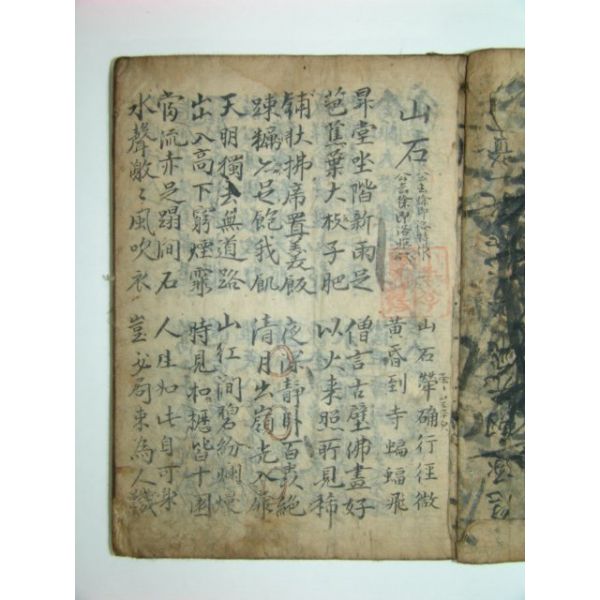 山石
山石犖确行徑微
黃昏到寺蝙蝠飛
昇堂坐階新雨足
芭蕉葉大枝子肥
僧言古壁佛畫好
以火來照所見稀
鋪牀拂席置羹飯
疎糲亦足飽我飢
夜深靜卧百虫絕
清月出嶺光入扉
天明獨去無道路
出入高下窮煙霏
山紅澗碧紛爛熳
時見松櫪皆十圍
當流赤足蹋澗石
水聲激〻風吹衣
人生如此自可樂
豈必局束為人鞿